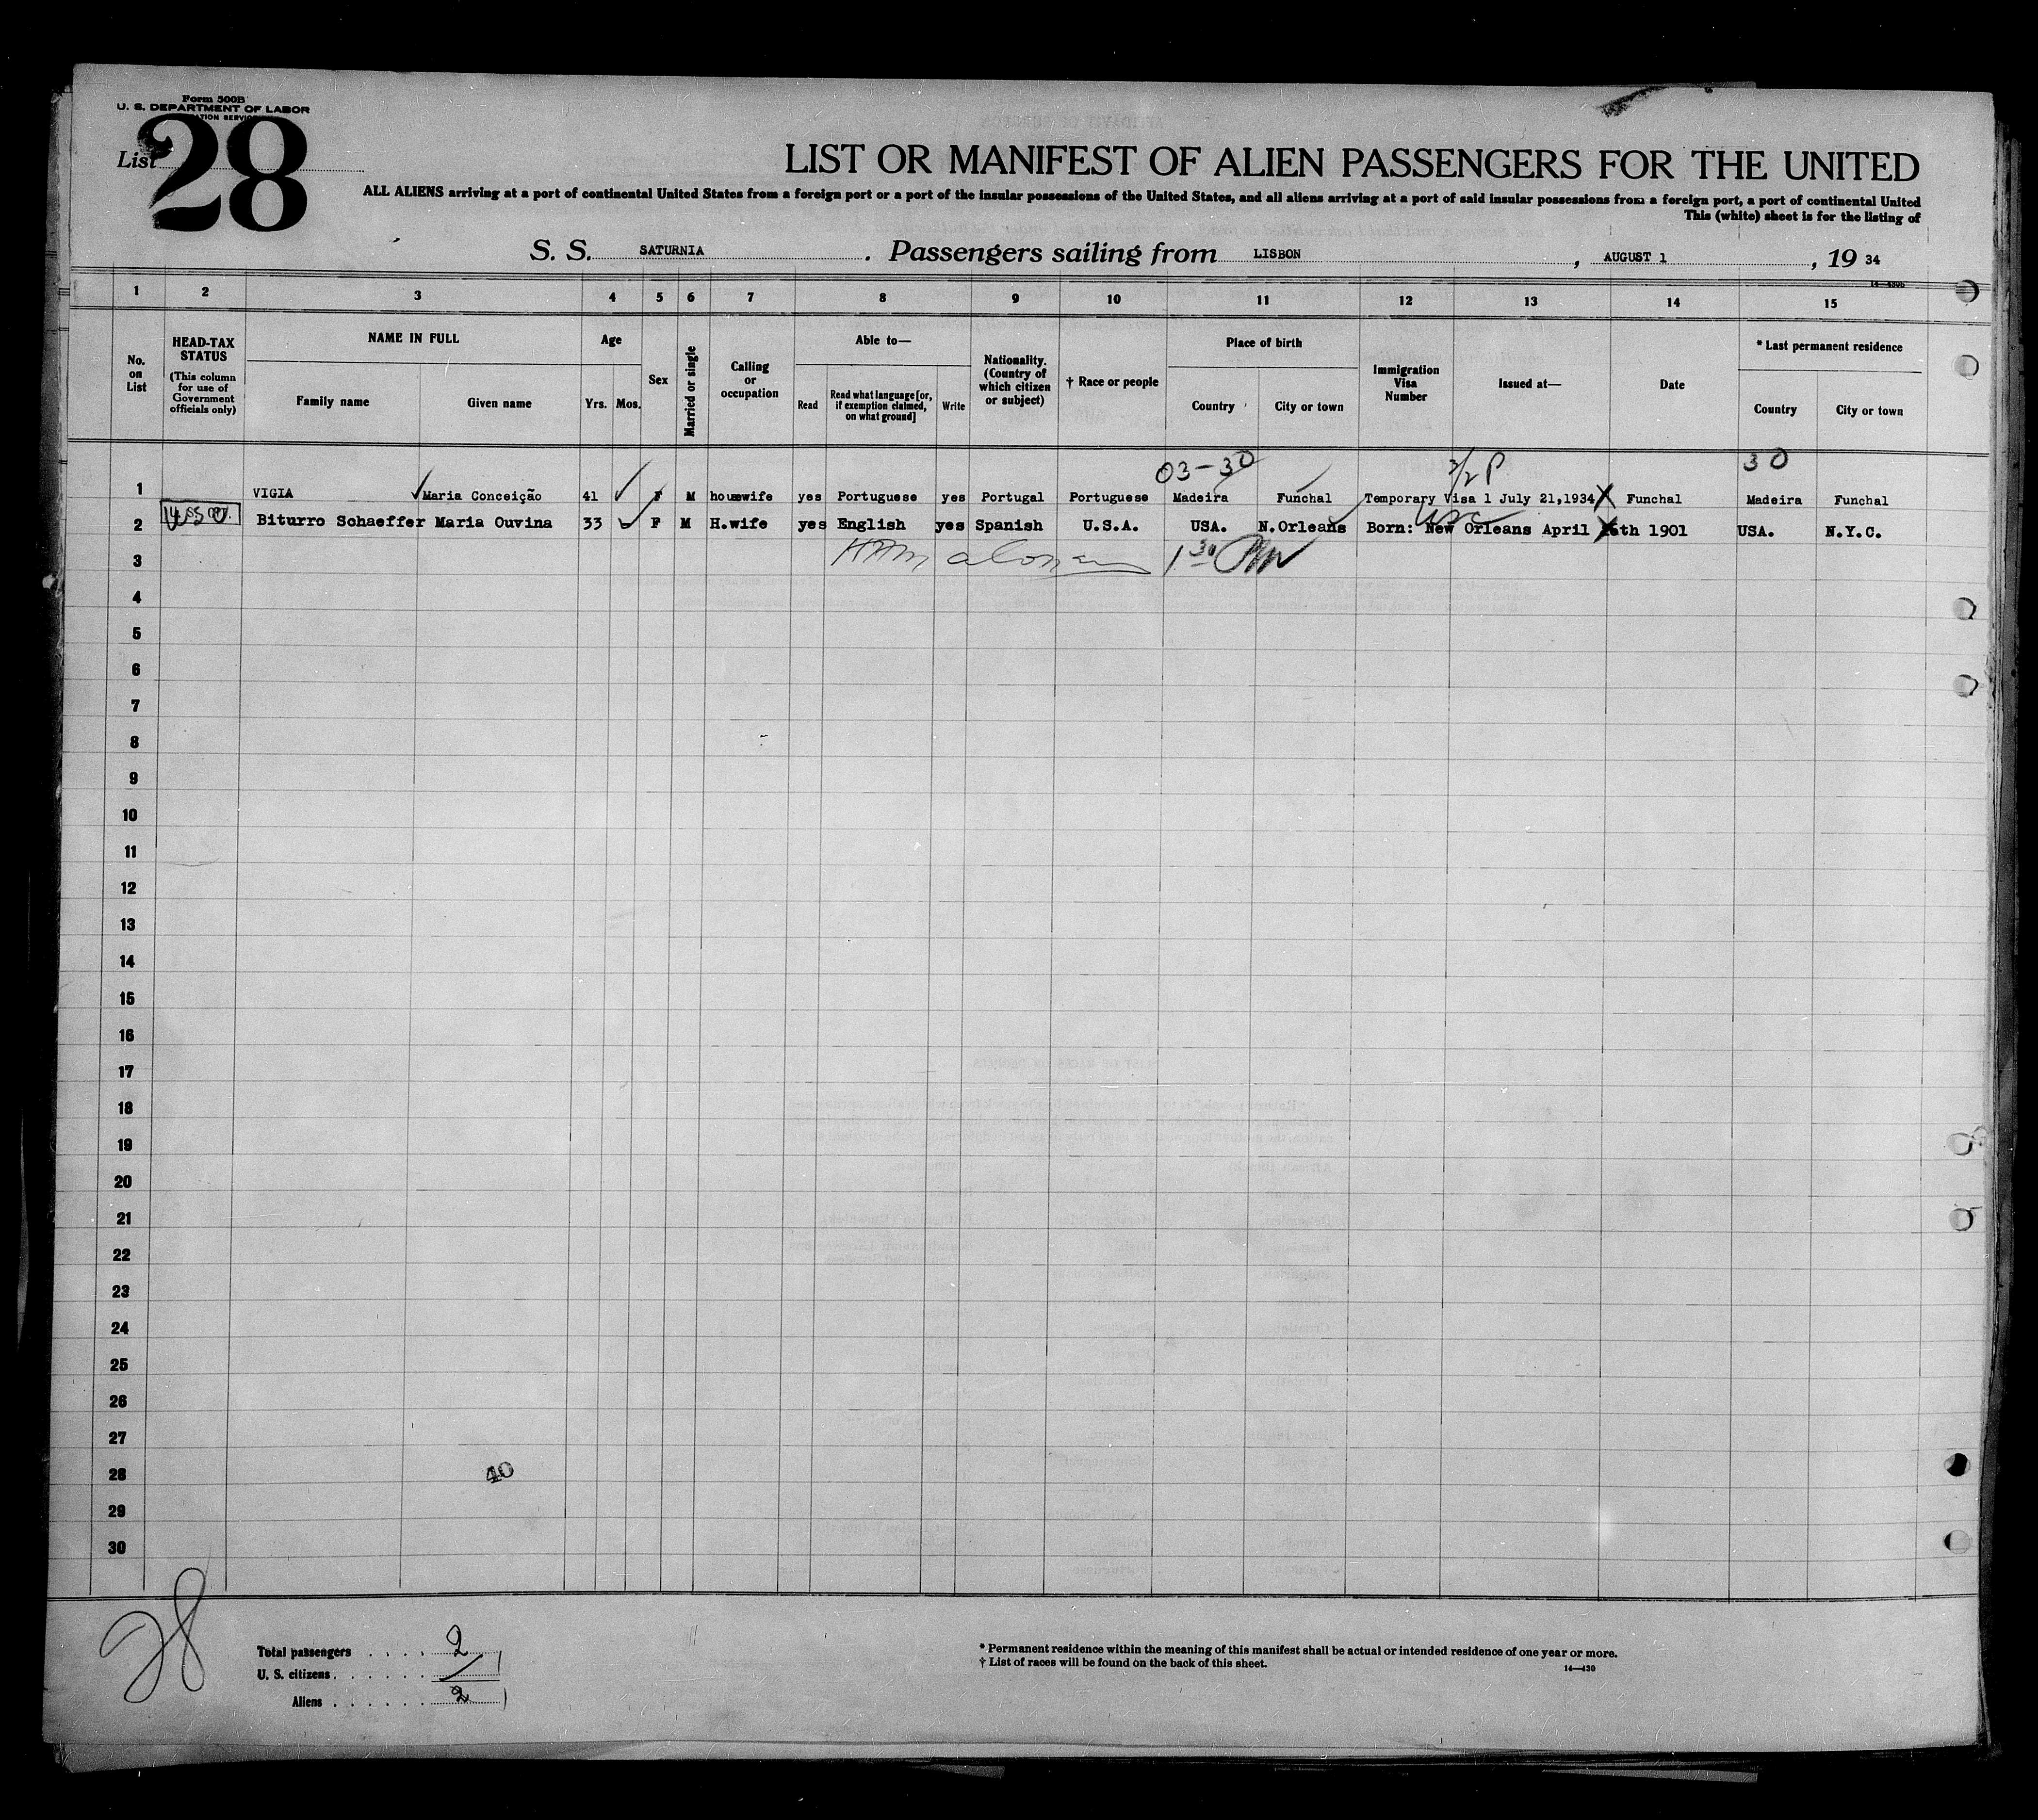 Form 500B
U. S. DEPARTMENT OF LABOR
List 28
LIST OR MANIFEST OF ALIEN PASSENGERS FOR THE UNITED
ALL ALIENS arriving at a port of continental United States from a foreign port or a port of the insular possessions of the United States, and all aliens arriving at a port of said insular possessions from a foreign port, a port of continental United
This (white) sheet is for the listing of
S. S. SATURNIA. Passengers sailing from LISBON, AUGUST 1, 19 34
1 2 3 4 5 6 7 8 9 10 11 12 13 14 15
No. on List
HEAD-TAX STATUS (This column for use of Government officials only)
NAME IN FULL
Family name Given name
Age
Yrs. Mos.
Sex
Married or single
Calling or occupation
Able to—
Read
Read what language [or, if exemption claimed, on what ground]
Write
Nationality. (Country of which citizen or subject)
† Race or people
Place of birth
Country City or town
Immigration Visa Number
Issued at—
Date
* Last permanent residence
Country City or town
03-30 30
1 VIGIA Maria Conceição 41 F M housewife yes Portuguese yes Portugal Portuguese Madeira Funchal Temporary Visa 1 July 21,1934 Funchal Madeira Funchal
USC
2 Biturro Schaeffer Maria Ouvina 33 F M H.wife yes English yes Spanish U.S.A. USA. N.Orleans Born: New Orleans April 1901 USA. N.Y.C.
3
4
5
6
7
8
9
10
11
12
13
14
15
16
17
18
19
20
21
22
23
24
25
26
27
28 40
29
30
28
Total passengers . . . . 2
U. S. citizens . . . . . . 1
Aliens . . . . . .
* Permanent residence within the meaning of this manifest shall be actual or intended residence of one year or more.
† List of races will be found on the back of this sheet.
14—430